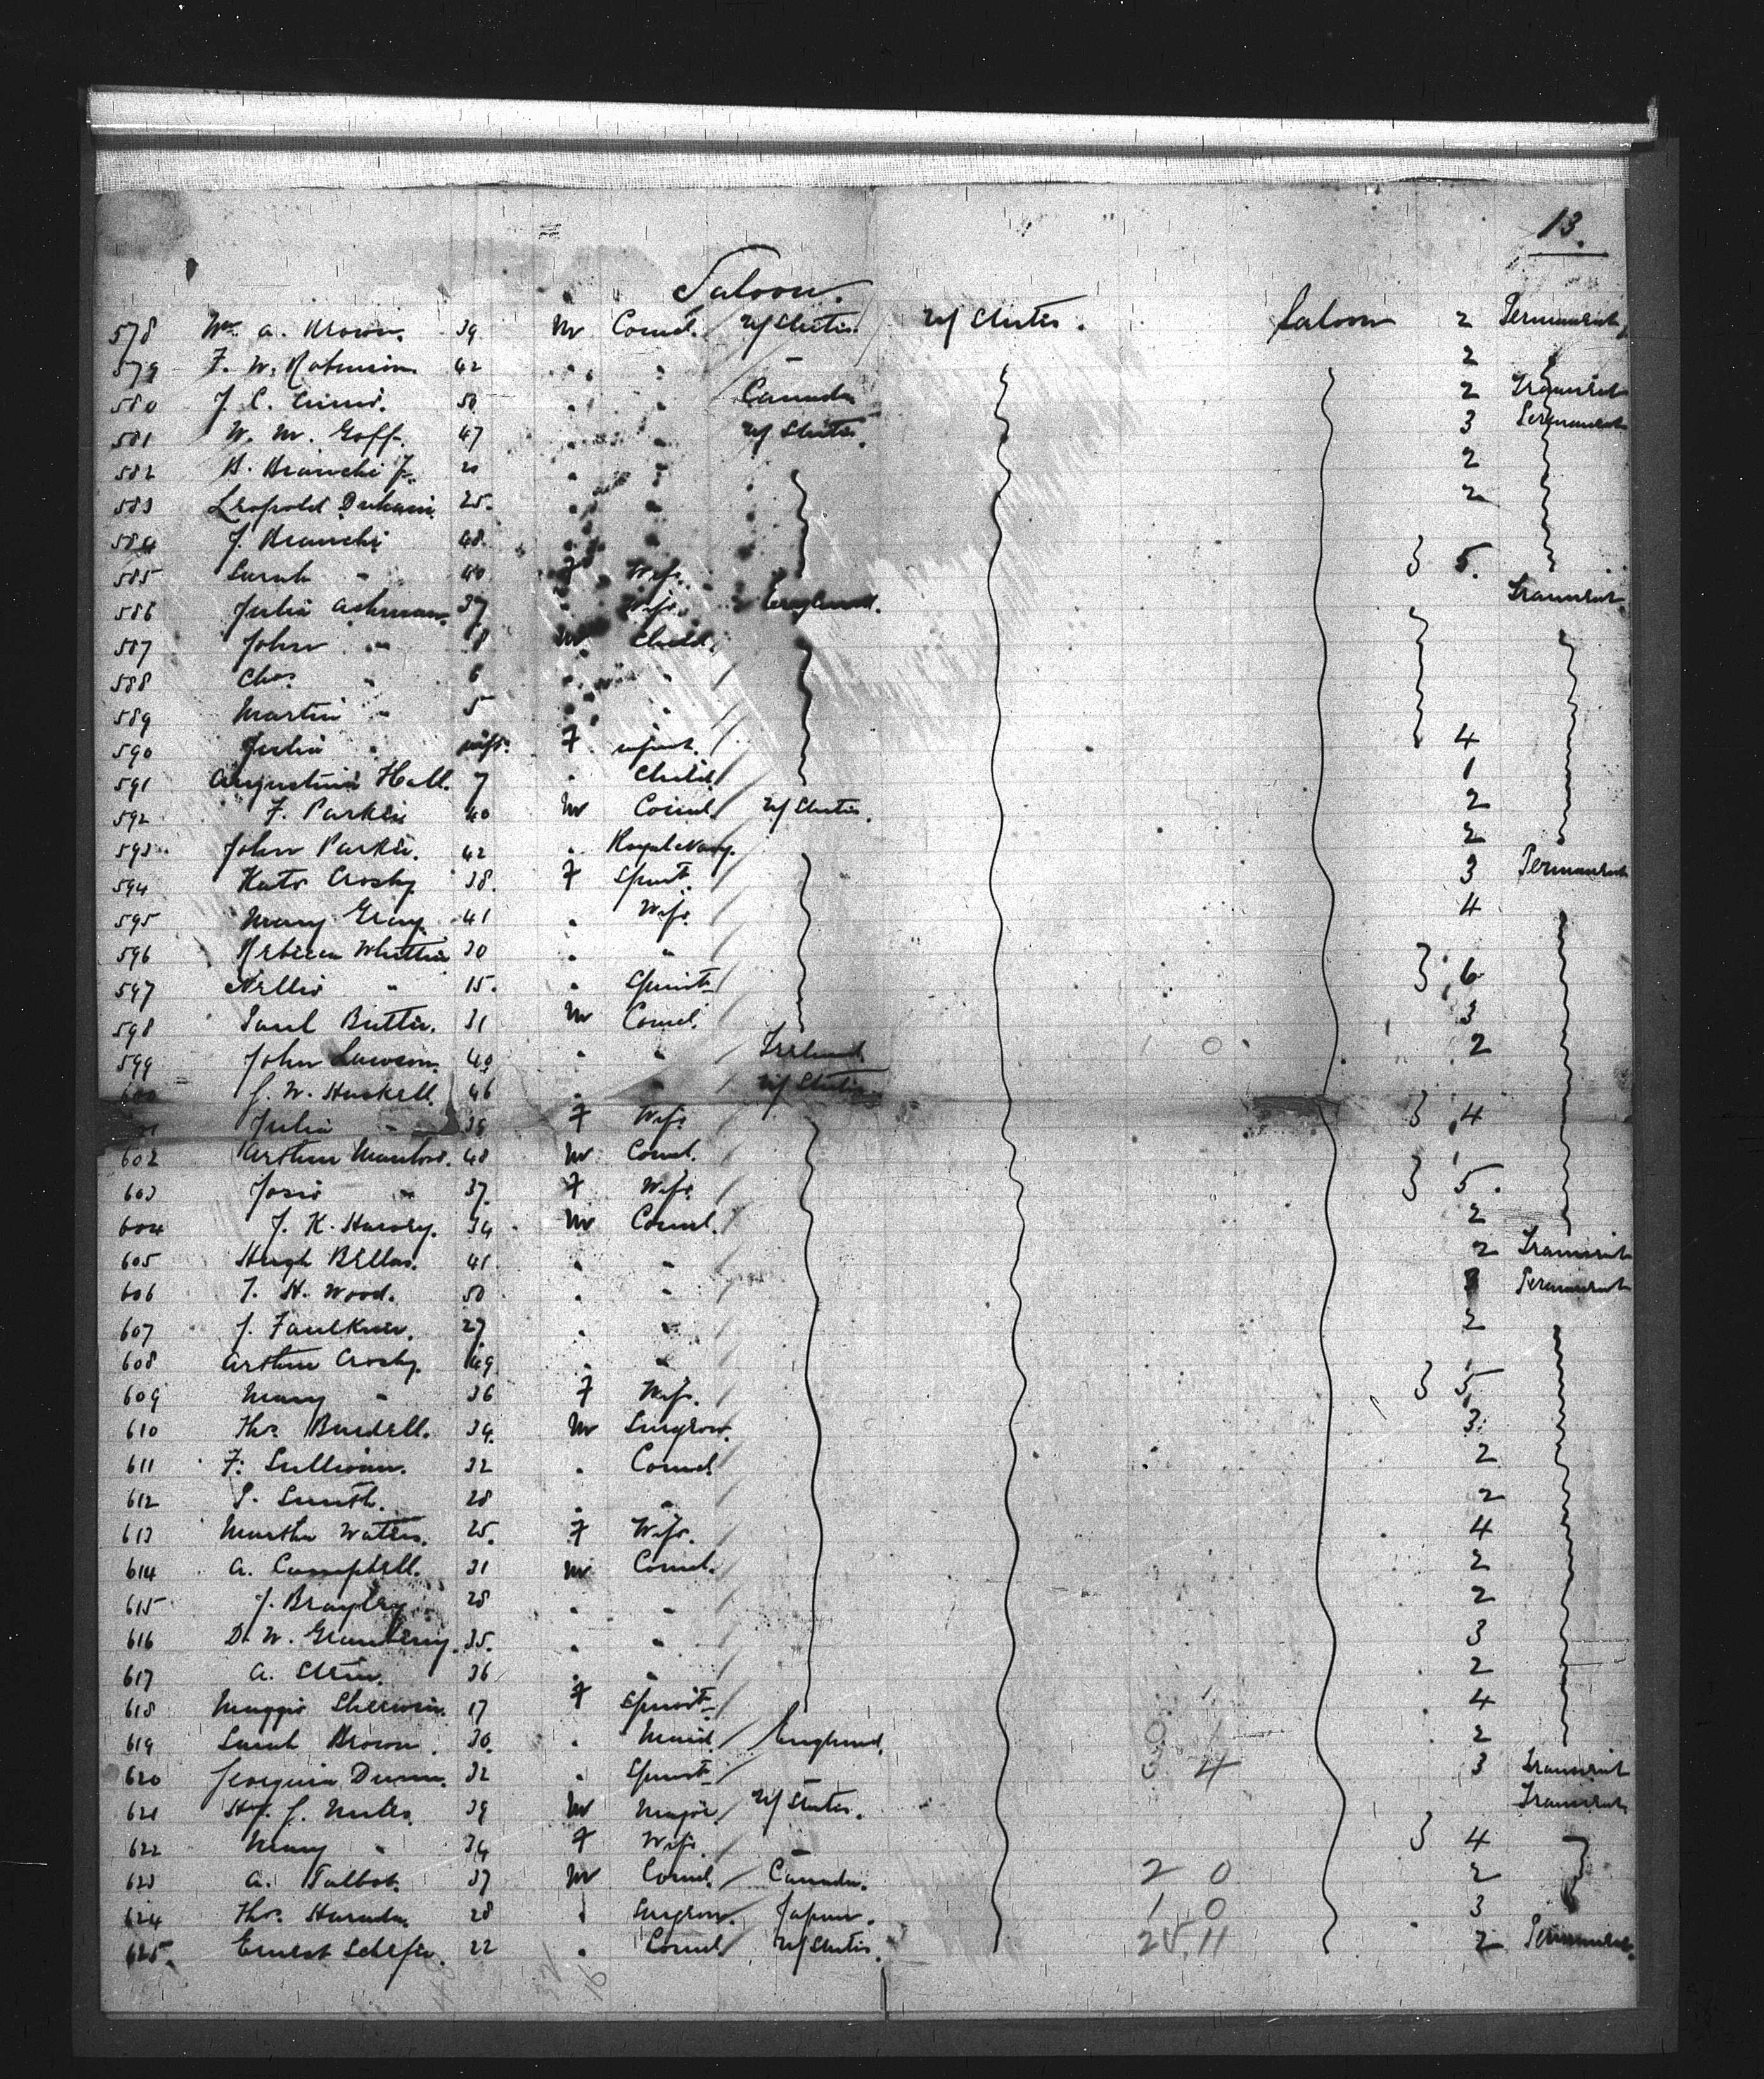 13.
Saloon.
578 Wm A. Brown. 39 M Coml. U/States. U/States. Saloon 2 Permanent
579 F. W. Robinson. 42 " " " 2
580 J. C. 50 " " Canada 2 Transient
581 W. M. Goff. 47 " " U/States. 3 Permanent
582 B. Bianchi Jr. 20 " " 2
583 Leopold 25. " " 2
584 J. Bianchi 48. " "
585 Sarah " 40 F Wife. } 5.
586 Julia Ashman. 37 " Wife. England. Transient
587 John " 8 M Child.
588 Chas. " 6 " "
589 Martin " 5 " "
590 Julia " inft. F infant. 4
591 Augustina Hall. 7 " Child 1
592 F. Parker 40 M Coml. U/States. 2
593 John Parker. 42 " Royal Navy. 2
594 Kate Crosby 38. F Spinst. 3 Permanent
595 Mary Gray. 41 " Wife. 4
596 Rebecca Whittier 30 " "
597 Nellie " 15. " Spinst } 6
598 Paul Butler. 31 M Coml. 3
599 John Lawson. 40 " " Ireland 2
600 G. W. Haskell. 46 " " U/States
Julia " 39 F Wife } 4
602 Arthur 48 M Coml.
603 Josie " 37. F Wife } 5.
604 J. K. 34 M Coml. 2
605 Hugh Bellas. 41. " " 2 Transient
606 T. H. Wood. 50 " " 3 Permanent
607 J. Faulkner. 27 " " 2
608 Arthur Crosby. 49 " "
609 Mary " 36 F Wife. } 5
610 Thos. Burdell. 34. M Surgeon. 3
611 F. Sullivan. 32 " Coml 2
612 P. Smith. 28 " " 2
613 Martha Waters. 25. F Wife. 4
614 A. Campbell. 31 M Coml. 2
615 J. Brayley 28 " " 2
616 D. W. Granbery. 35. " " 3
617 A. Stein. 36 " " 2
618 Maggie Sherwin. 17 F Spinst 4
619 Sarah Brown. 30. " Maid England. 0 1 2
620 Georgina Dunn. 32 " Spinst 3 4 3 Transient
621 J. Miles. 39 M Major U/States. Transient
622 Mary " 34 F Wife " } 4
623 A. Talbot. 37 M Coml. Canada. 2 0 2
624 Thos. Harada. 28 " Surgeon. Japan. 1 0 3
625. Ernest 22 " Coml U/States. 25 11 2 Permanent.